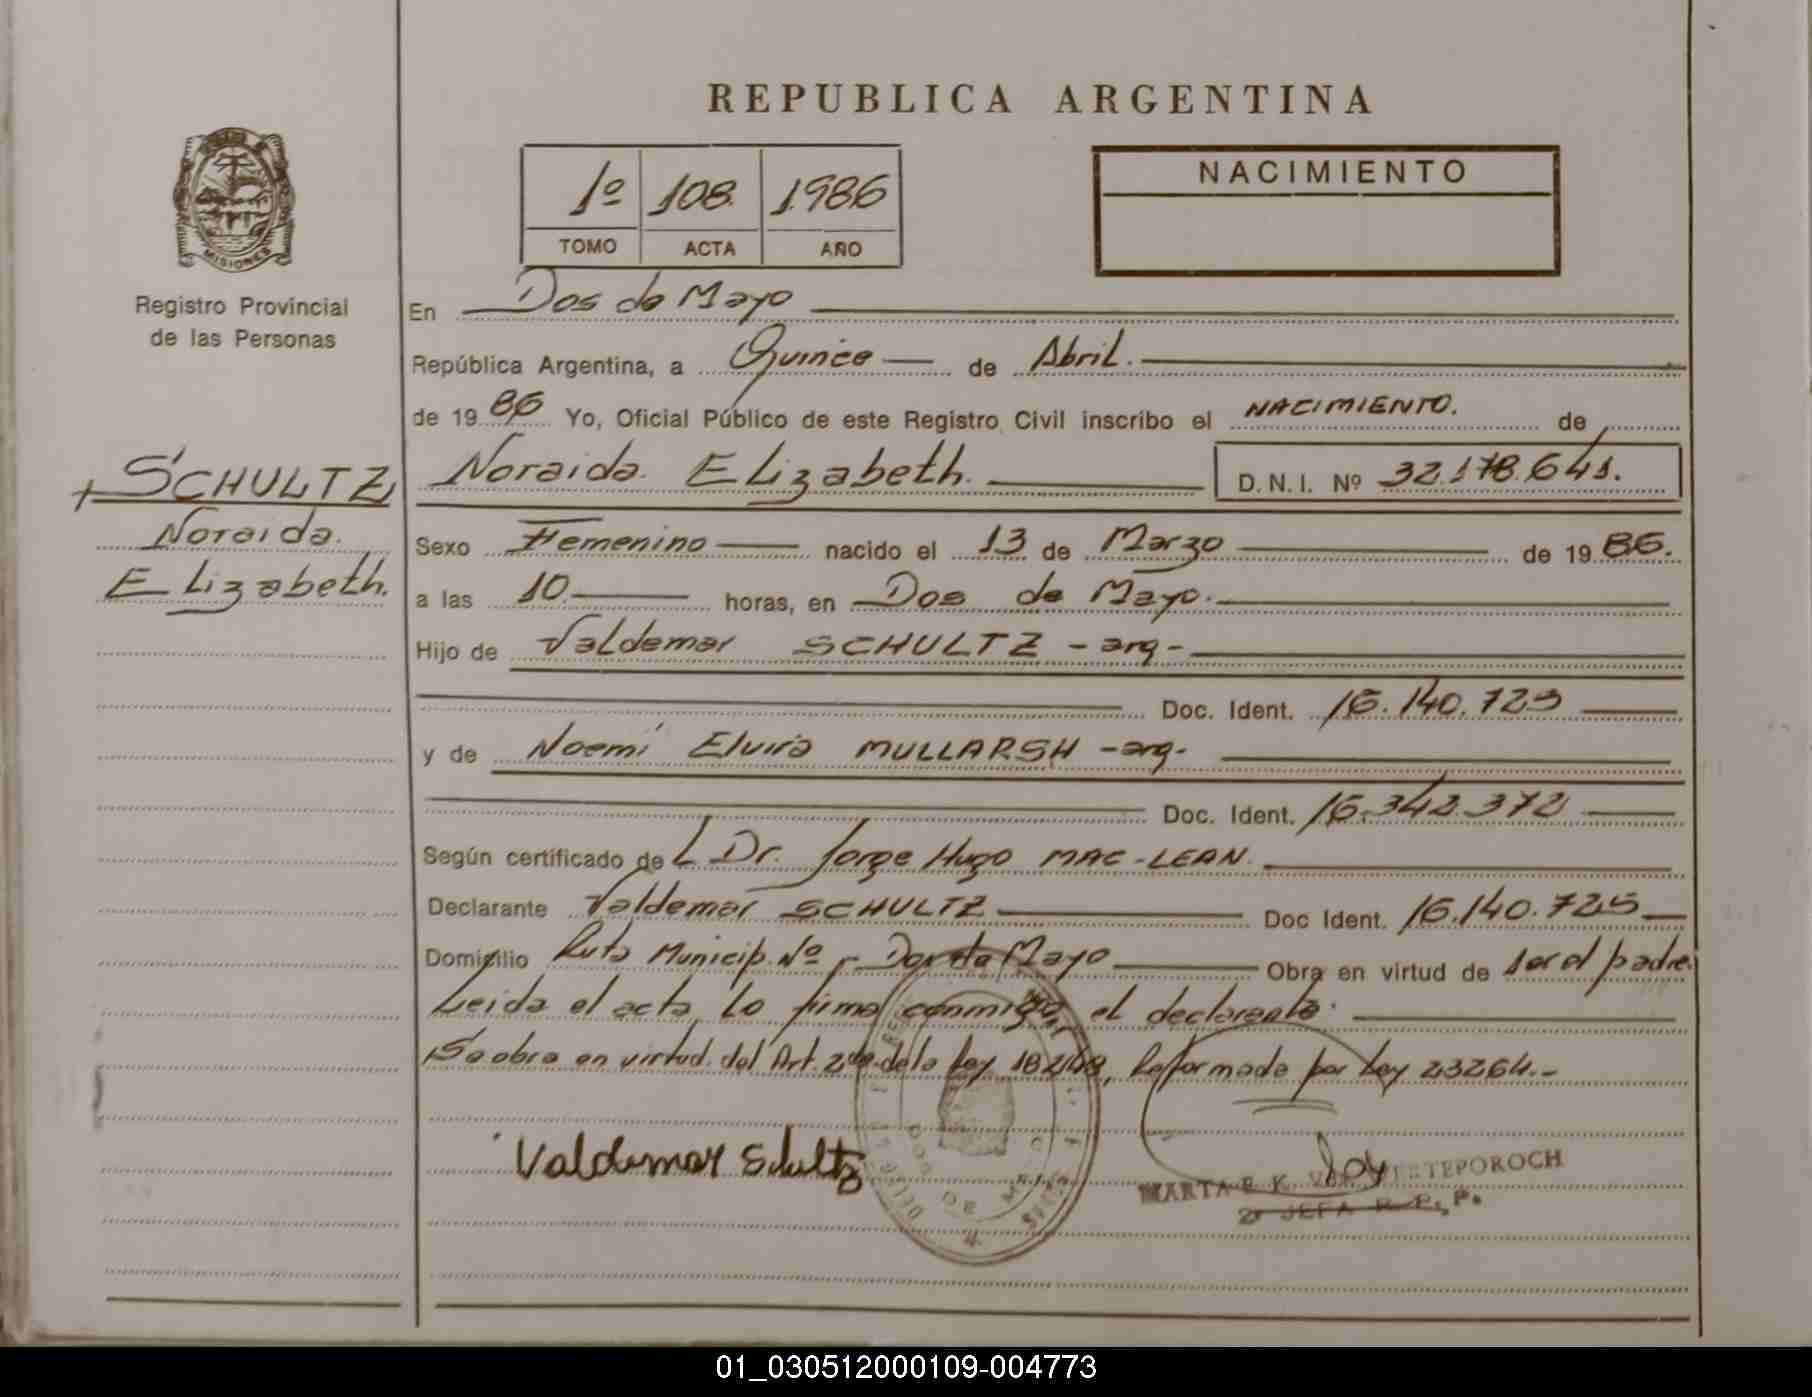 REPUBLICA ARGENTINA
MISIONES
Registro Provincial
de las Personas
1º 108. 1.986
TOMO ACTA AÑO
NACIMIENTO
En Dos de Mayo
República Argentina, a Quince de Abril.
de 19 86 Yo, Oficial Público de este Registro Civil inscribo el NACIMIENTO. de
SCHULTZ
Noraida.
Elizabeth.
Noraida. Elizabeth. D.N.I. Nº 32.178.641.
Sexo Femenino nacido el 13 de Marzo de 19 86.
a las 10 horas, en Dos de Mayo.
Hijo de Valdemar SCHULTZ - arg -
Doc. Ident. 16.140.725
y de Noemí Elvira MULLARSH - arg-
Doc. Ident. 16.342.372
Según certificado de L Dr. Jorge Hugo MAC-LEAN.
Declarante Valdemar SCHULTZ Doc Ident. 16.140.725
Domicilio Ruta Municip. Nº - Dos de Mayo Obra en virtud de ser el padre.
Leida el acta, lo firma conmigo, el declarante.
Se obra en virtud. del Art. 2do. de la Ley 18248, Reformada por Ley 23264.-
Valdemar Schultz
MARTA E. K.
JEFA R. P. P.
01_030512000109-004773